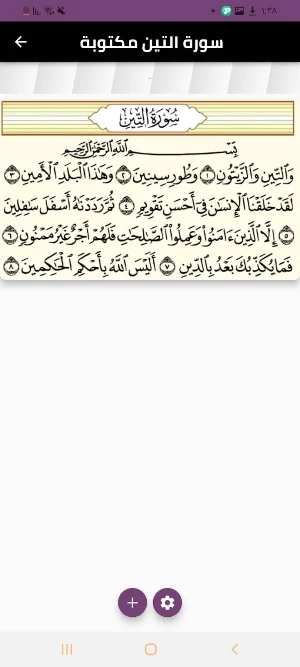 ١:٣٨
سورة التين مكتوبة
سُورَةُ التِّينِ
بِسْمِ اللَّهِ الرَّحْمَٰنِ الرَّحِيمِ
وَالتِّينِ وَالزَّيْتُونِ ١ وَطُورِ سِينِينَ ٢ وَهَٰذَا الْبَلَدِ الْأَمِينِ ٣
لَقَدْ خَلَقْنَا الْإِنسَٰنَ فِي أَحْسَنِ تَقْوِيمٍ ٤ ثُمَّ رَدَدْنَٰهُ أَسْفَلَ سَٰفِلِينَ
٥ إِلَّا الَّذِينَ ءَامَنُوا وَعَمِلُوا الصَّٰلِحَٰتِ فَلَهُمْ أَجْرٌ غَيْرُ مَمْنُونٍ ٦
فَمَا يُكَذِّبُكَ بَعْدُ بِالدِّينِ ٧ أَلَيْسَ اللَّهُ بِأَحْكَمِ الْحَٰكِمِينَ ٨